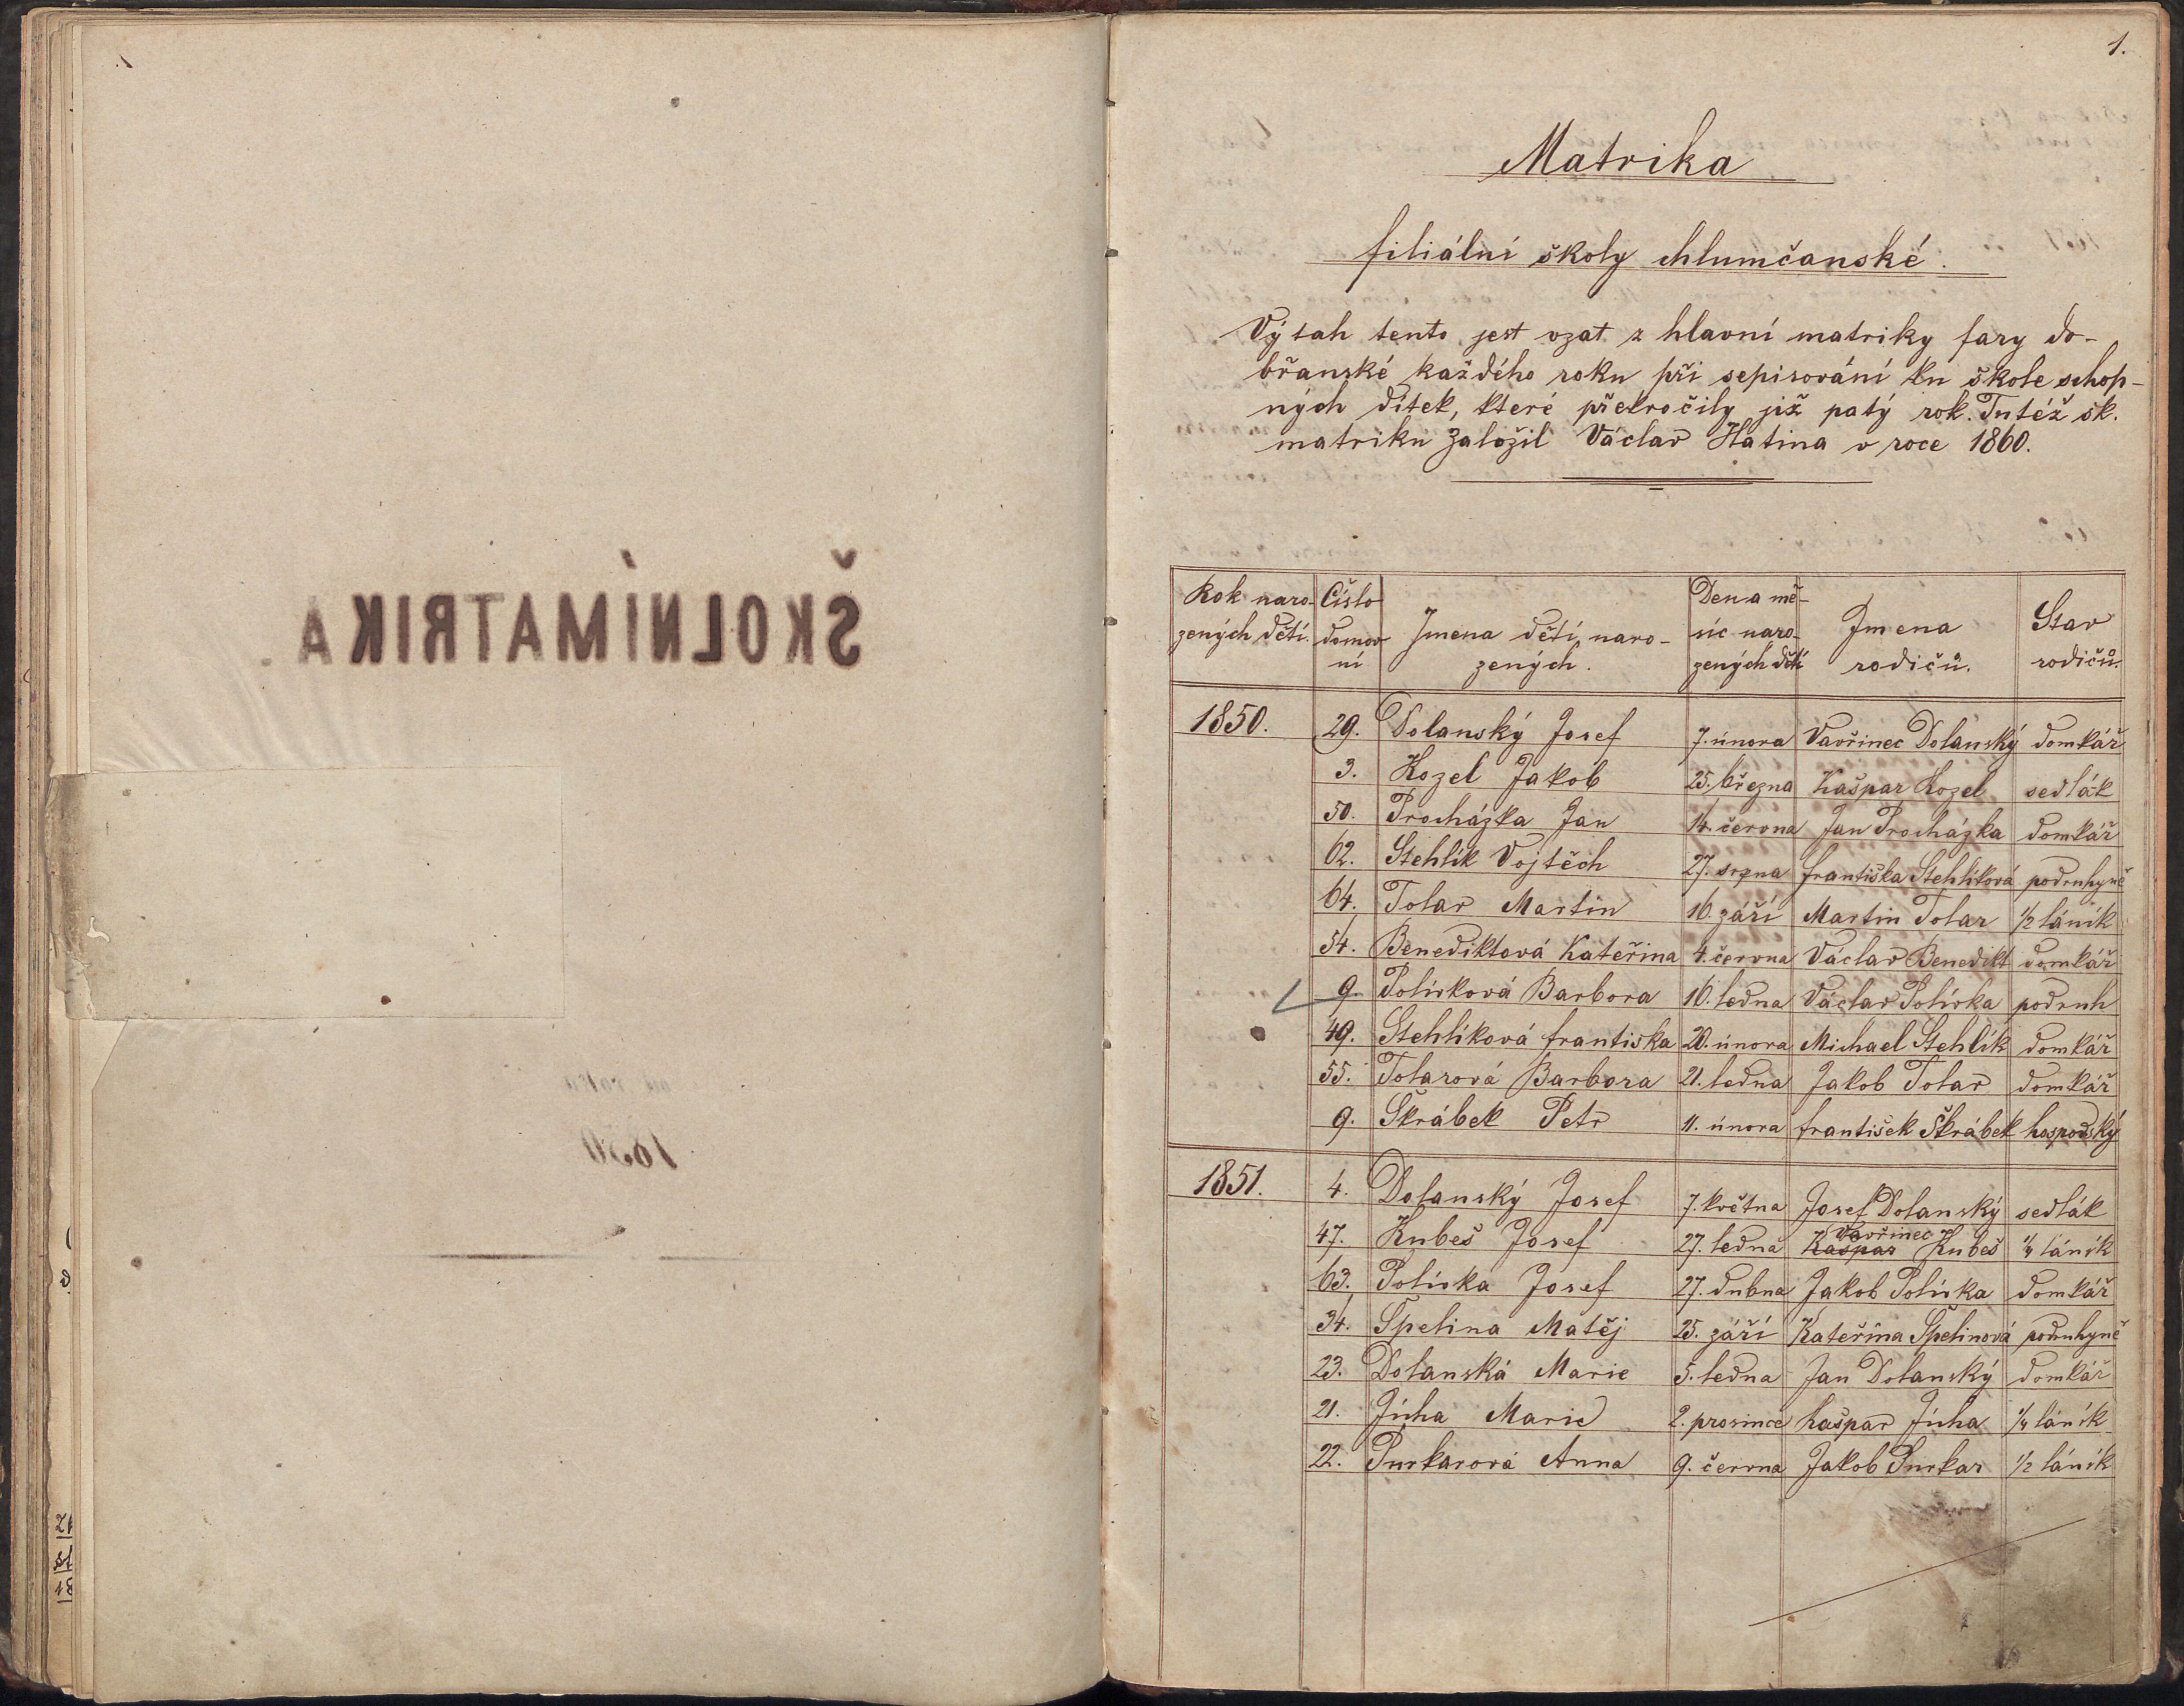 ŠKOLNÍ MATRIKA.
od roku
1850
1.
Matrika
filiální školy chlumčanské.
Výtah tento jest vzat z hlavní matriky fary do-
břanské každého roku při sepisování ku škole schop-
ných dítek, které překročily již patý rok. Tutéž šk.
matriku založil Václav Hatina v roce 1860.
Rok naro- zených dětí. Číslo domov ní Jmena dětí naro- zených. Den a mě- síc naro- zených dětí Jmena rodičů. Stav rodičů.
1850. 29. Dolanský Josef 7. února Vavřinec Dolanský domkář
3. Kozel Jakob 25. března Kašpar Kozel sedlák
50. Procházka Jan 14. června Jan Procházka domkář
62. Stehlík Vojtěch 27. srpna Františka Stehlíková podruhyně
64. Tolar Martin 16. září Martin Tolar 1/2 láník
54. Benediktová Kateřina 4. června Václav Benedikt domkář
9. Polívková Barbora 16. ledna Václav Polívka podruh
49. Stehlíková Frantiska 20. února Michael Stehlík domkář
55. Tolarová Barbora 21. ledna Jakob Tolar domkář
9. Škrábek Petr 11. února František Škrábek hospodský
1851. 4. Dolanský Josef 7. května Josef Dolanský sedlák
47. Kubeš Josef 27. ledna Kašpar Vavřinec Kubeš 1/4 láník
63. Polívka Josef 27. dubna Jakob Polívka domkář
34. Špelina Matěj 25. září Kateřina Špelinová podruhyně
23. Dolanská Marie 5. ledna Jan Dolanský domkář
21. Jícha Marie 2. prosince Kašpar Jícha 1/4 láník
22. Purkarová Anna 9. června Jakob Purkar 1/2 láník